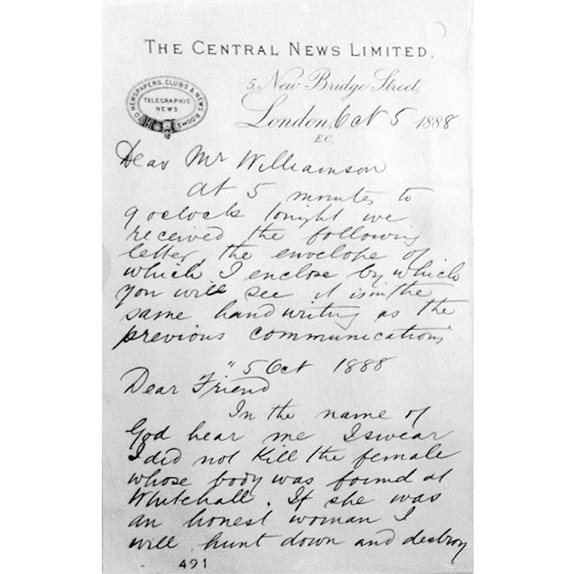 THE CENTRAL NEWS LIMITED.
5, New Bridge Street,
NEWSPAPERS, CLUBS & NEWS ROOMS
TELEGRAPHIC
NEWS
London, Oct 5 1888
E.C.
Dear Mr Williamson
At 5 minutes to
9 oclock tonight we
received the following
letter the envelope of
which I enclose by which
you will see it is in the
same handwriting as the
previous communications
"5 Oct 1888
Dear Friend
In the name of
God hear me I swear
I did not kill the female
whose body was found at
Whitehall. If she was
an honest woman I
will hunt down and destroy
491